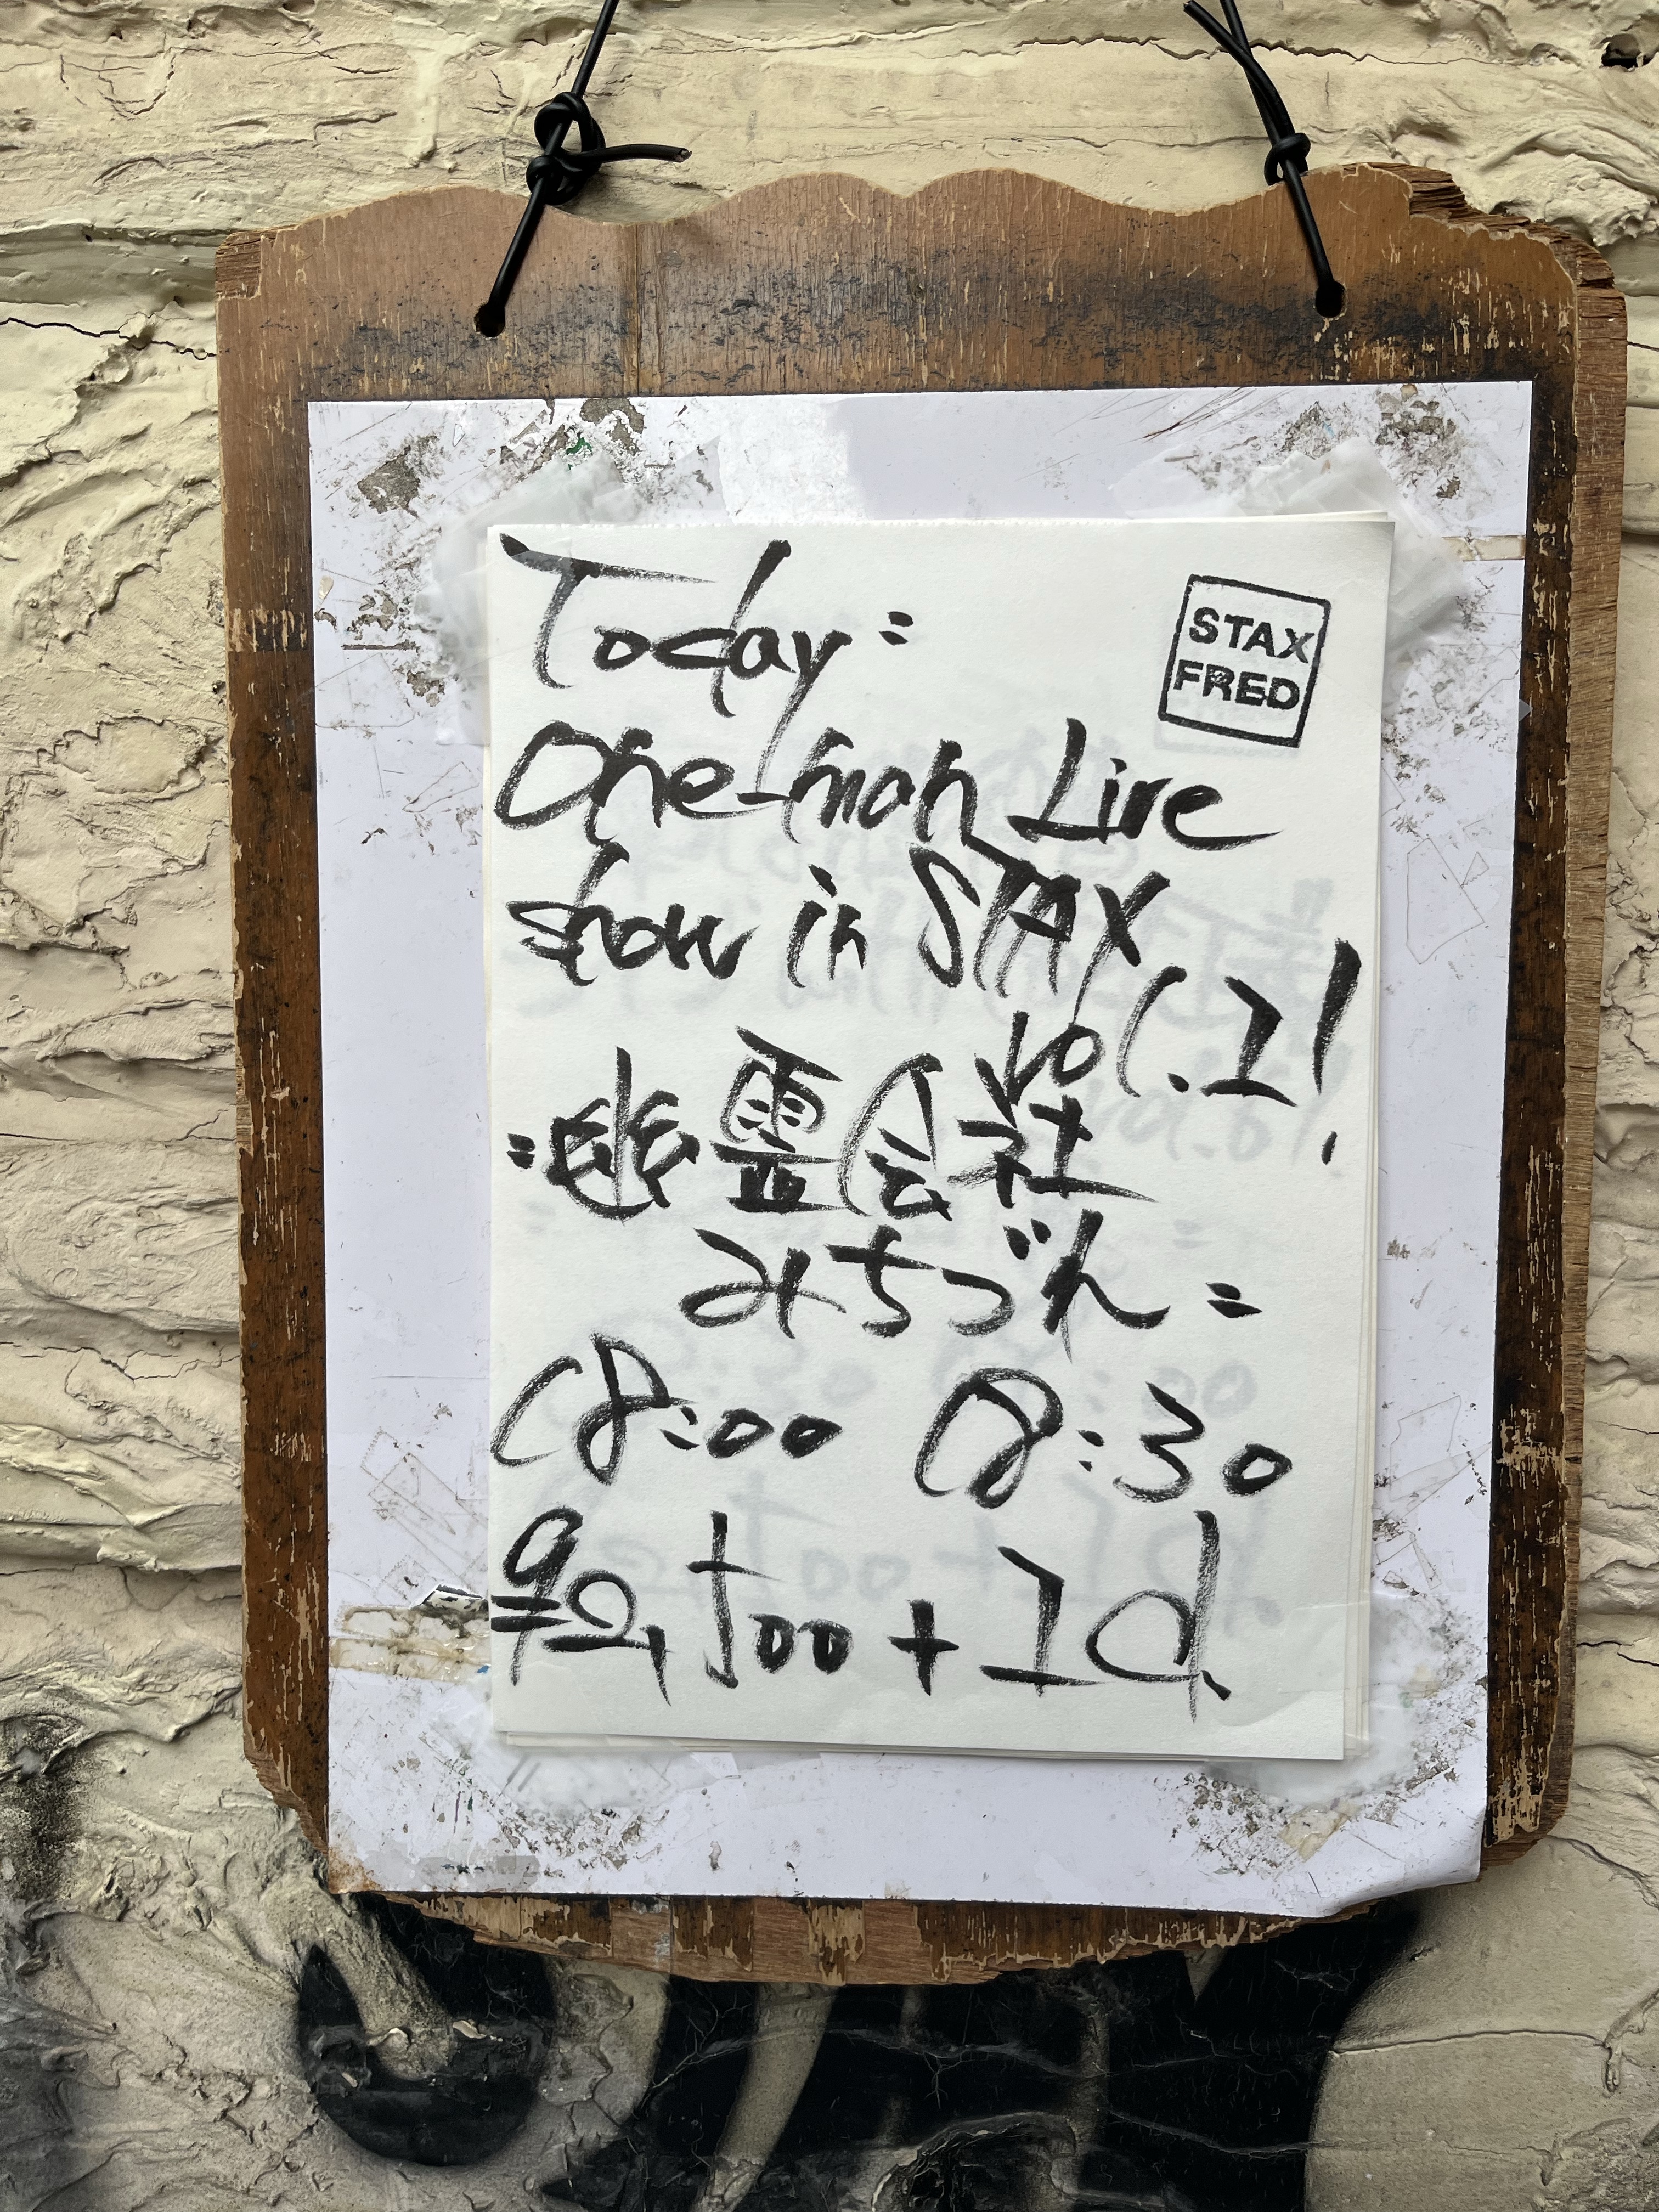 Today:
STAX
FRED
One-man Live
show in STAX
vol.1!
=幽霊会社
みちづれ=
18:00 18:30
¥2,500+1d.